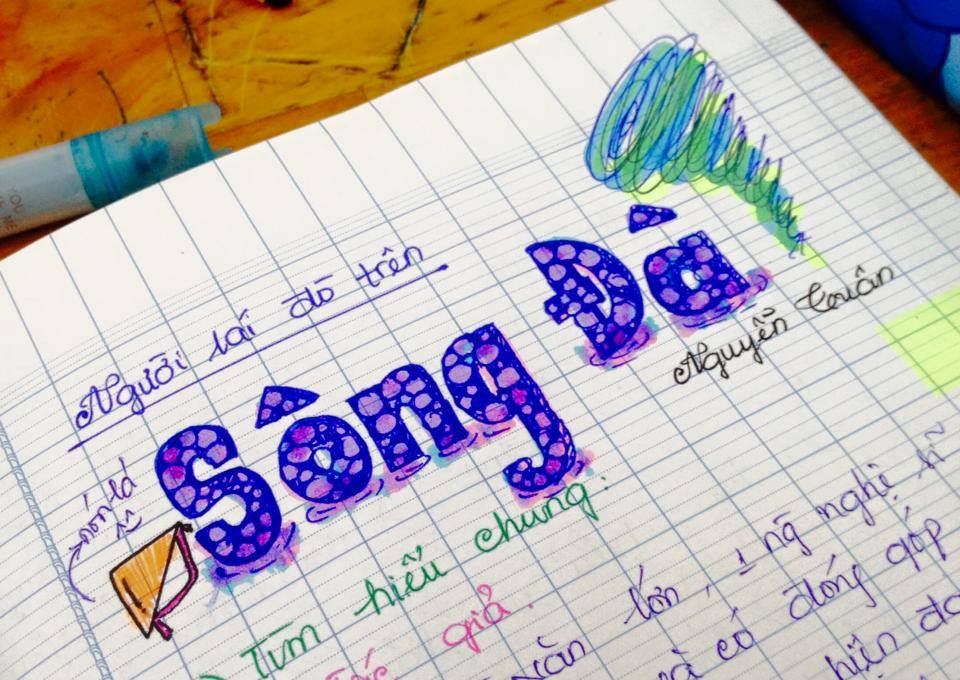 Người lái đò trên
Sông Đà
Nguyễn Tuân
nón lá
Tìm hiểu chung:
Tác giả.
văn lớn, 1 ng nghệ sĩ
và có đóng góp
hiện đạ
YOU